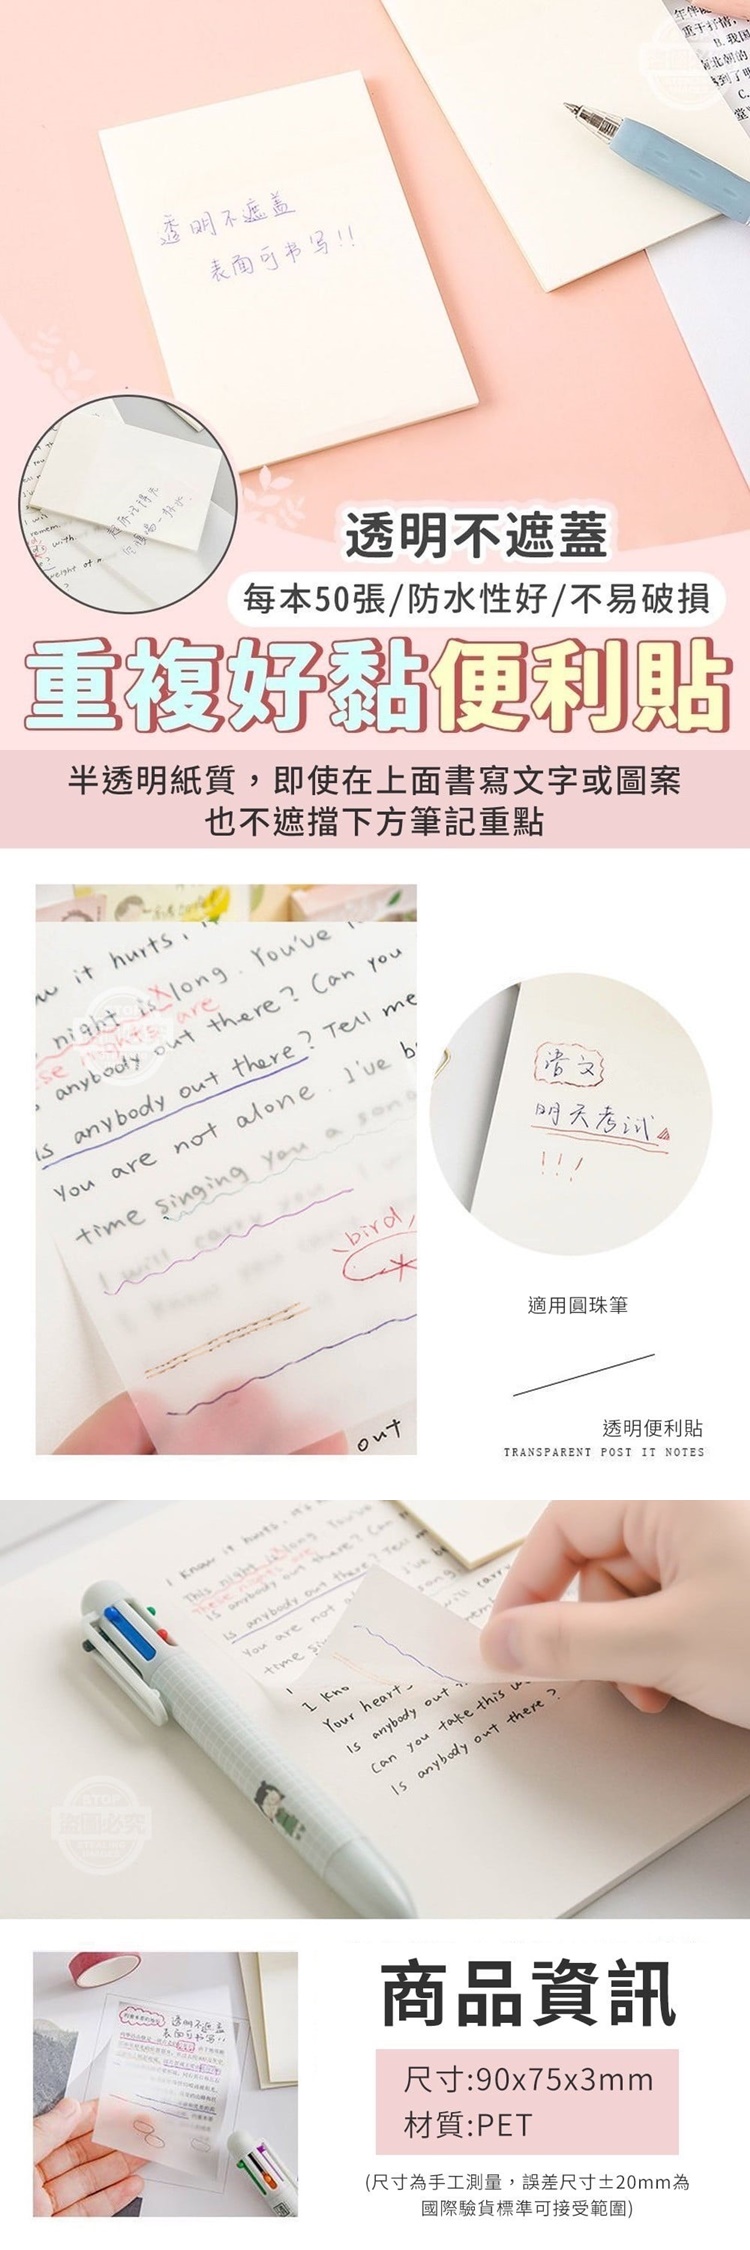 透明不遮盖
表面可书写!!
透明不遮蓋
每本50張/防水性好/不易破損
重複好黏便利貼
半透明紙質，即使在上面書寫文字或圖案
也不遮擋下方筆記重點
it hurts.
night is long. You've
are
anybody out there? Can you
is anybody out there? Tell me
You are not alone. I've b
time singing you a song
I will carry you
bird
out
语文
明天考试
!!!
適用圓珠筆
透明便利貼
TRANSPARENT POST IT NOTES
I know it hurts.
This night is long.
These nights are
Is anybody out there? Can
Is anybody out there? Tell m
You are not
time si
I kno
Your heart
Is anybody out
Can you take this w
Is anybody out there?
STOP
盜圖必究
商品資訊
透明不遮盖
表面可书写!!
尺寸:90x75x3mm
材質:PET
(尺寸為手工測量，誤差尺寸±20mm為
國際驗貨標準可接受範圍)